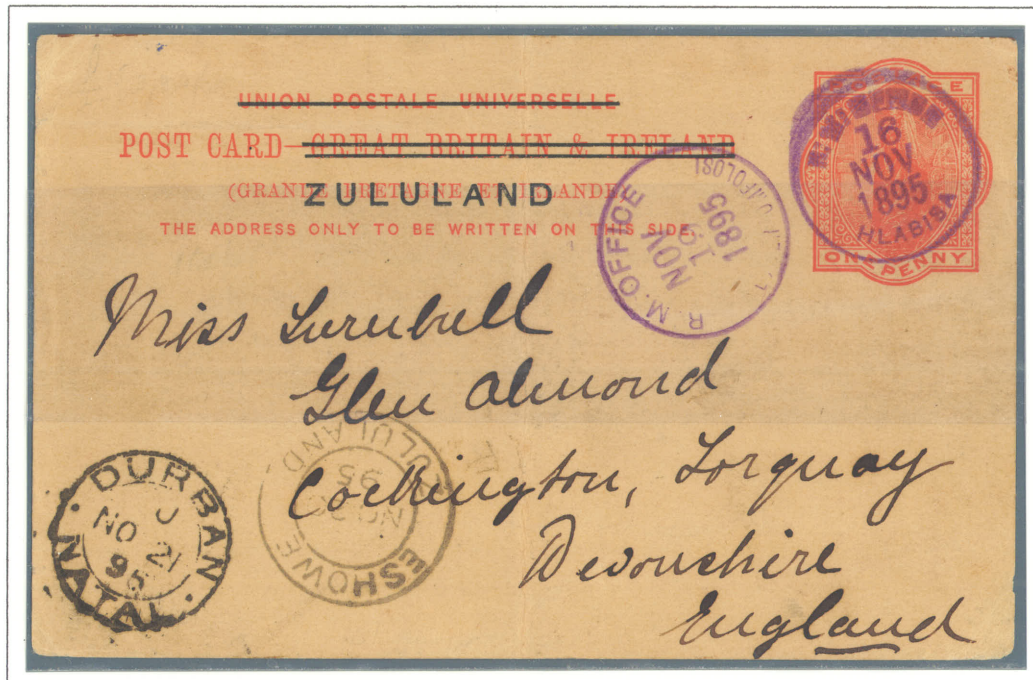 UNION POSTALE UNIVERSELLE
POST CARD GREAT BRITAIN & IRELAND
(GRANDE BRETAGNE ET IRLANDE)
ZULULAND
THE ADDRESS ONLY TO BE WRITTEN ON THIS SIDE.
ONE PENNY
16
NOV
1895
HLABISA
R. M. OFFICE
19
NOV
1895
Miss Turnbull
Glen Almond
Cockington, Torquay
Devonshire
England
DURBAN
NO 21
95
NATAL
ESHOWE
ZULULAND
NO
95